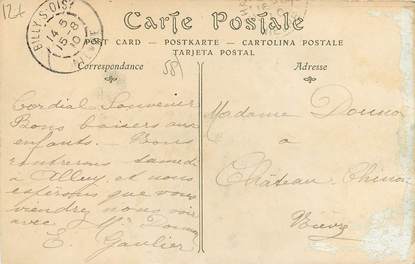 12+
BILLY S. OISY
14-5
15-8
10
NIÈVRE
Carte Postale
POST CARD - POSTKARTE - CARTOLINA POSTALE
TARJETA POSTAL
Correspondance
Adresse
Cordial Souvenir
Bons baisers aux
enfants. - Nous
rentrerons samedi
à Alluy, et nous
espérons que vous
viendrez nous voir
avec Mr
E. Gaulier
Madame
à
Château-Chinon
Nièvre